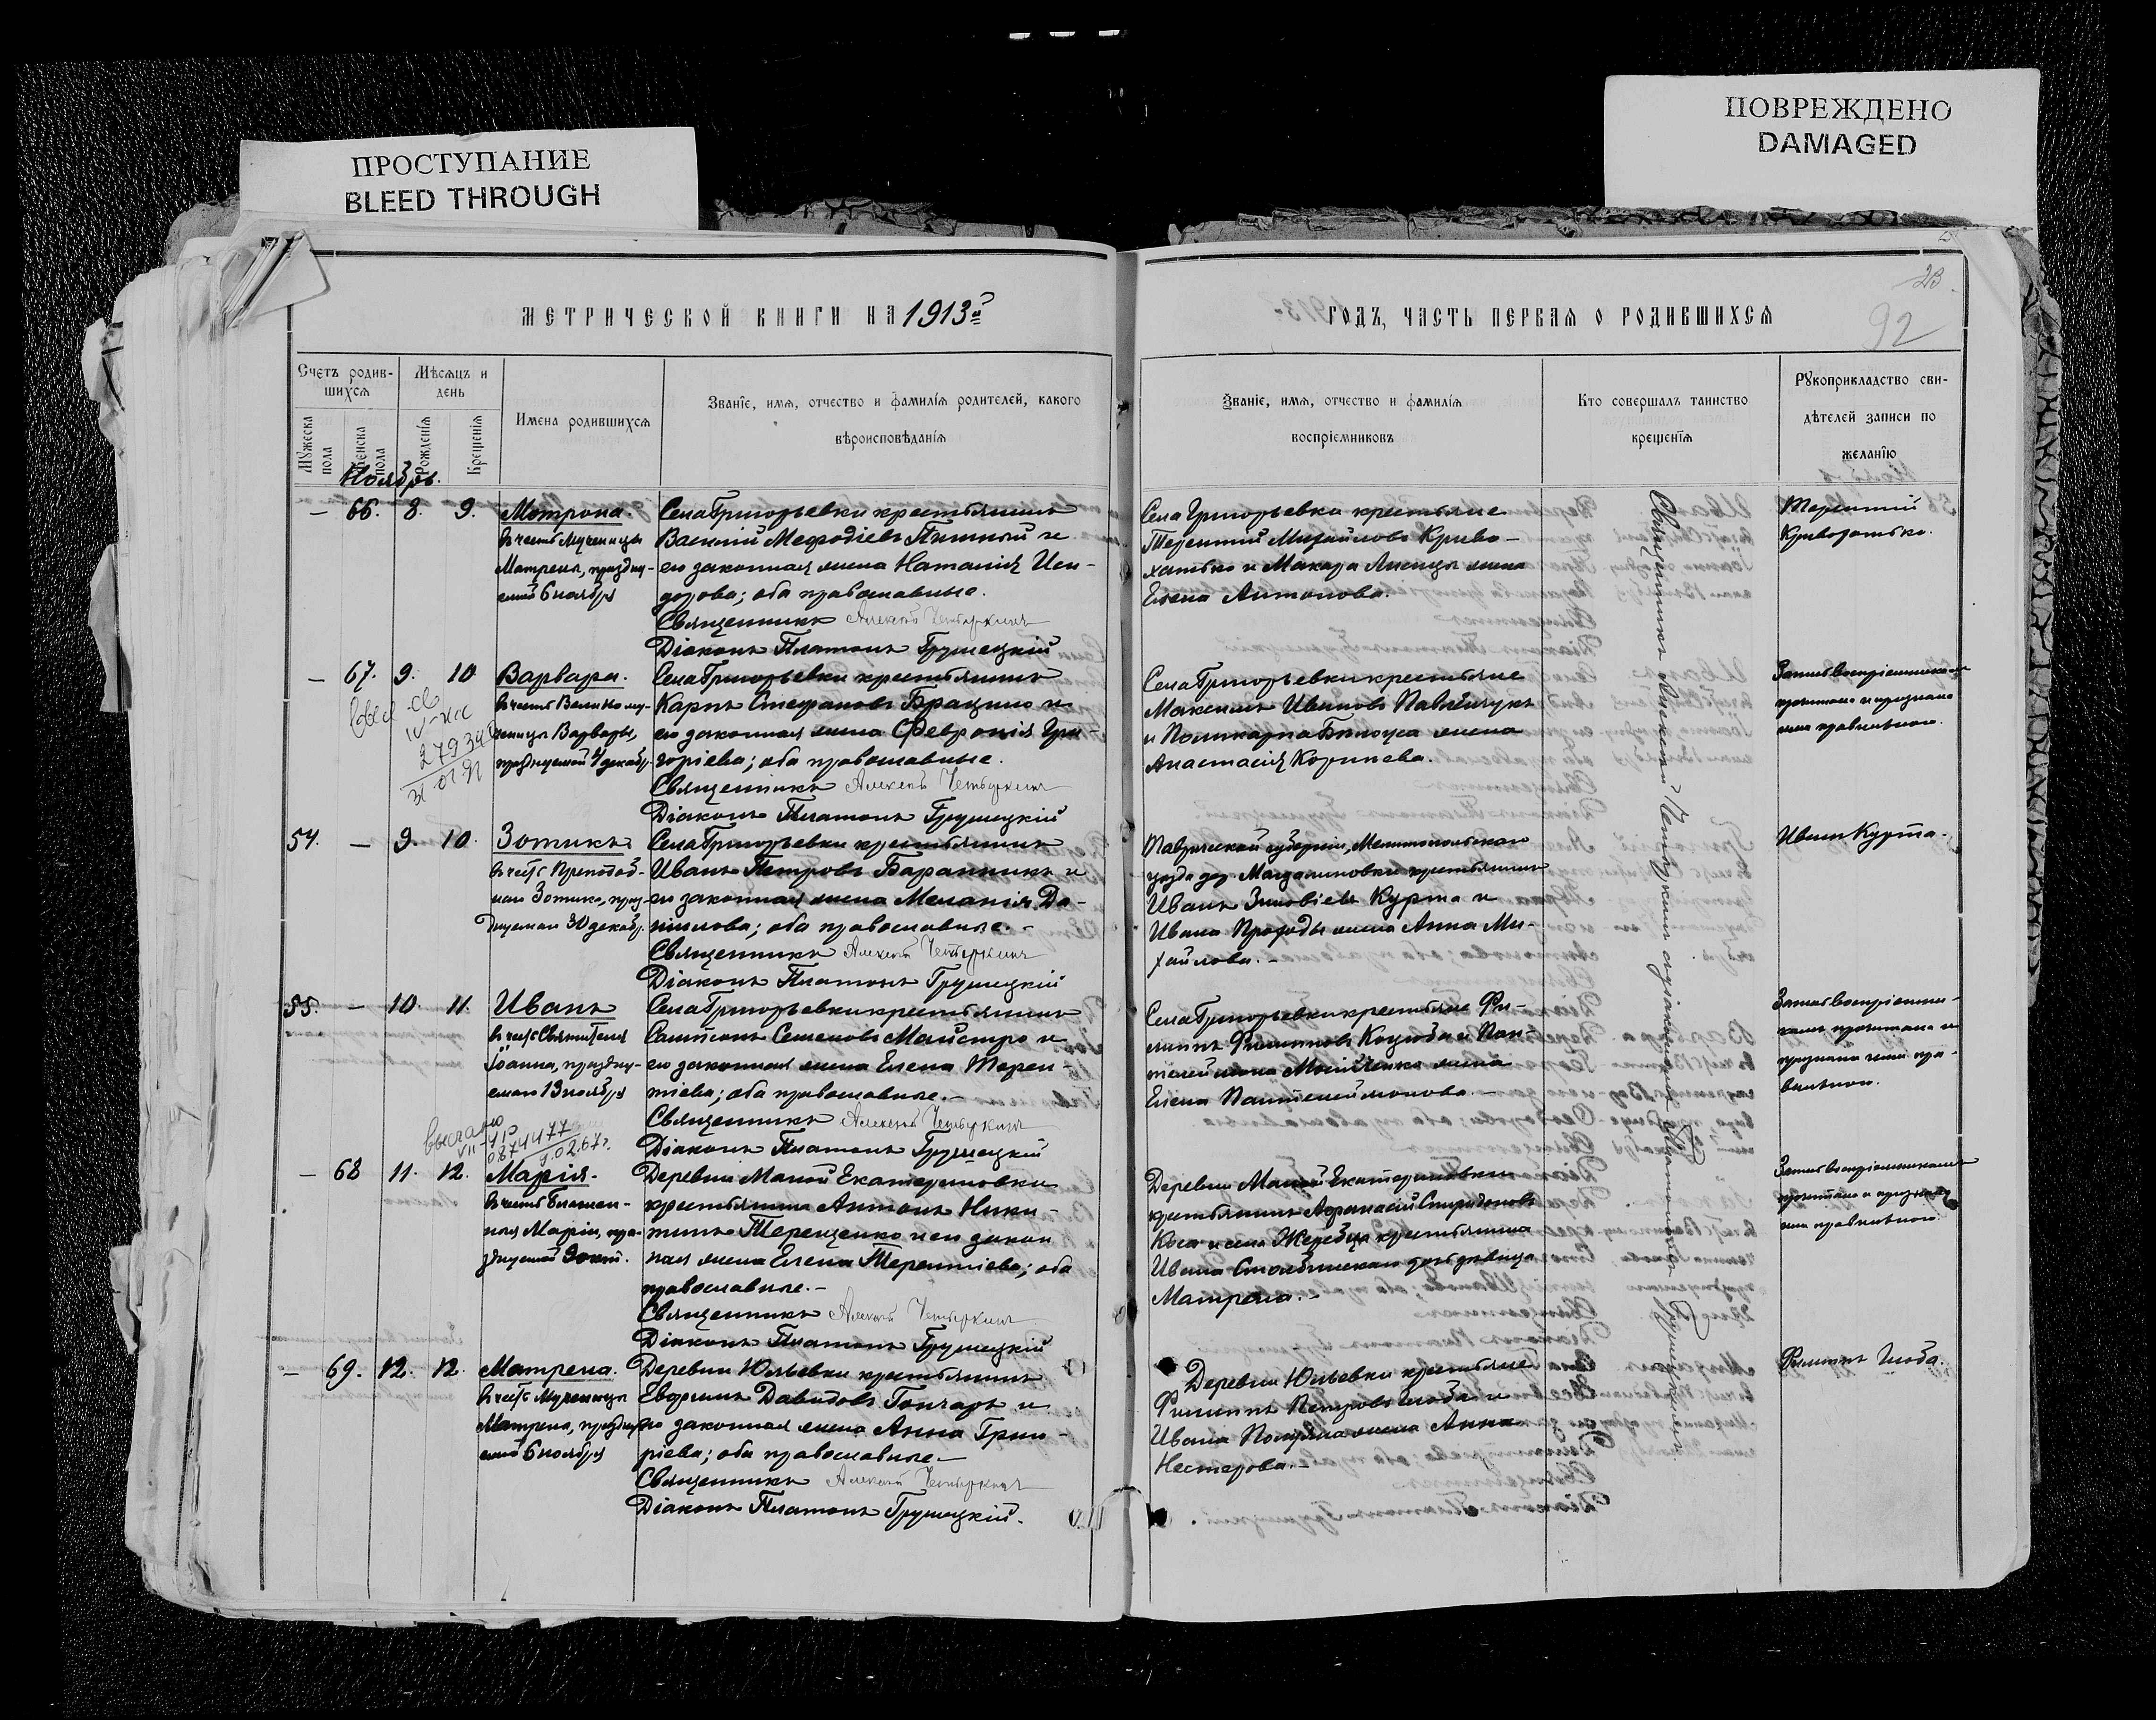 ПРОСТУПАНИЕ
BLEED THROUGH
ПОВРЕЖДЕНО
DAMAGED
МЕТРИЧЕСКОЙ КНИГИ НА 1913й
ГОДЪ, ЧАСТЬ ПЕРВАЯ О РОДИВШИХСЯ
23
92
Счетъ родив-
шихся
Мѣсяцъ и
день
Мужеска
пола
Женска
пола
Рожденія
Крещенія
Имена родившихся
Званіе, имя, отчество и фамилія родителей, какого
вѣроисповѣданія
Званіе, имя, отчество и фамилія
воспріемниковъ
Кто совершалъ таинство
крещенія
Рукоприкладство сви-
дѣтелей записи по
желанію
Ноябрь.
— 66. 8. 9. Матрона.
въ честь Мученицы
Матрены, праздну-
емой 6 ноября
Села Григорьевки крестьянинъ
Василій Мефодіевъ Пышный и
его законная жена Наталія Иси-
дорова; оба православные.
Священникъ Алексей Четыркинъ
Діаконъ Платонъ Грушецкій
Села Григорьевки крестьяне
Терентій Михайловъ Криво-
хатько и Макара Лисицы жена
Елена Антонова.
Терентій
Кривохатько.
— 67. 9. 10 Варвара.
въ честь Великому-
ченицы Варвары,
празднуемой 4 декабр.
Села Григорьевки крестьянинъ
Карпъ Стефановъ Брацило и
его законная жена Февронія Гри-
горіева; оба православные.
Священникъ Алексей Четыркинъ
Діаконъ Платонъ Грушецкій
Села Григорьевки крестьяне
Максимъ Ивановъ Павленчукъ
и Поликарпа Билоуса жена
Анастасія Корнева.
Запись воспріемникамъ
прочитана и признана
ими правильною.
54. — 9. 10. Зотикъ
въ честь Преподоб-
наго Зотика, праз-
днуемаго 30 декабр.
Села Григорьевки крестьянинъ
Иванъ Петровъ Баранникъ и
его законная жена Меланія Да-
ниилова; оба православные.
Священникъ Алексей Четыркинъ
Діаконъ Платонъ Грушецкій
Таврической губерніи, Мелитопольскаго
уѣзда дер. Магдалиновки крестьянинъ
Иванъ Зиновіевъ Курта и
Ивана Прогоды жена Анна Ми-
хайлова.
Иванъ Курта.
55. — 10. 11. Иванъ
въ честь Святителя
Іоанна, праздну-
емаго 13 ноября
Села Григорьевки крестьянинъ
Сампсонъ Семеновъ Майстро и
его законная жена Елена Терен-
тіева; оба православные.
Священникъ Алексей Четыркинъ
Діаконъ Платонъ Грушецкій
Села Григорьевки крестьяне Фи-
липпъ Филипповъ Коцюба и Пан-
телеймона Мосійченко жена
Елена Пантелеймонова.
Запись воспріемни-
камъ прочитана и
признана ими пра-
вильною.
— 68 11. 12. Марія.
въ честь Блажен-
ныя Маріи, пра-
зднуемой
Деревни Малой Екатериновки
крестьянинъ Антонъ Ники-
тинъ Терещенко и его закон
ная жена Елена Терентіева; оба
православные.
Священникъ Алексей Четыркинъ
Діаконъ Платонъ Грушецкій
Деревни Малой Екатериновки
крестьянинъ Афанасій Спиридоновъ
Коса и села Жеребца крестьянина
Ивана дочь дѣвица
Матрена.
Запись воспріемникамъ
прочитана и признана
ими правильною.
— 69. 12. 12. Матрена.
въ честь Мученицы
Матрены, праздну-
емой 6 ноября
Деревни Юльевки крестьянинъ
Евфимъ Давидовъ Гончаръ и
его законная жена Анна Григо-
ріева; оба православные.
Священникъ Алексей Четыркинъ
Діаконъ Платонъ Грушецкій.
Деревни Юльевки крестьяне
Филиппъ Петровъ Глоба и
Ивана жена Анна
Нестерова.
Филиппъ Глоба.
Священникъ Алексей Четыркинъ съ діакономъ Платономъ Грушецкимъ.